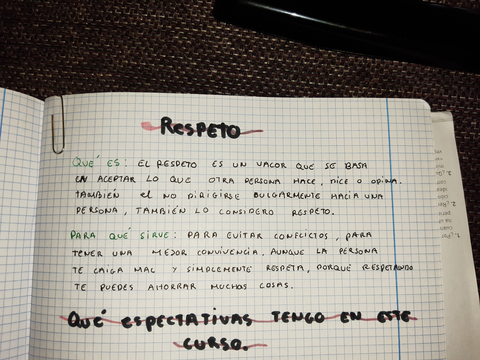 RESPETO
QUÉ ES: EL RESPETO ES UN VALOR QUE SE BASA
EN ACEPTAR LO QUE OTRA PERSONA HACE, DICE O OPINA.
TAMBIÉN EL NO DIRIGIRSE BULGARMENTE HACIA UNA
PERSONA, TAMBIÉN LO CONSIDERO RESPETO.
PARA QUÉ SIRVE: PARA EVITAR CONFLICTOS, PARA
TENER UNA MEJOR CONVIVENCIA, AUNQUE LA PERSONA
TE CAIGA MAL Y SIMPLEMENTE RESPETA, PORQUE RESPETANDO
TE PUEDES AHORRAR MUCHAS COSAS.
QUÉ ESPECTATIVAS TENGO EN ESTE
CURSO.